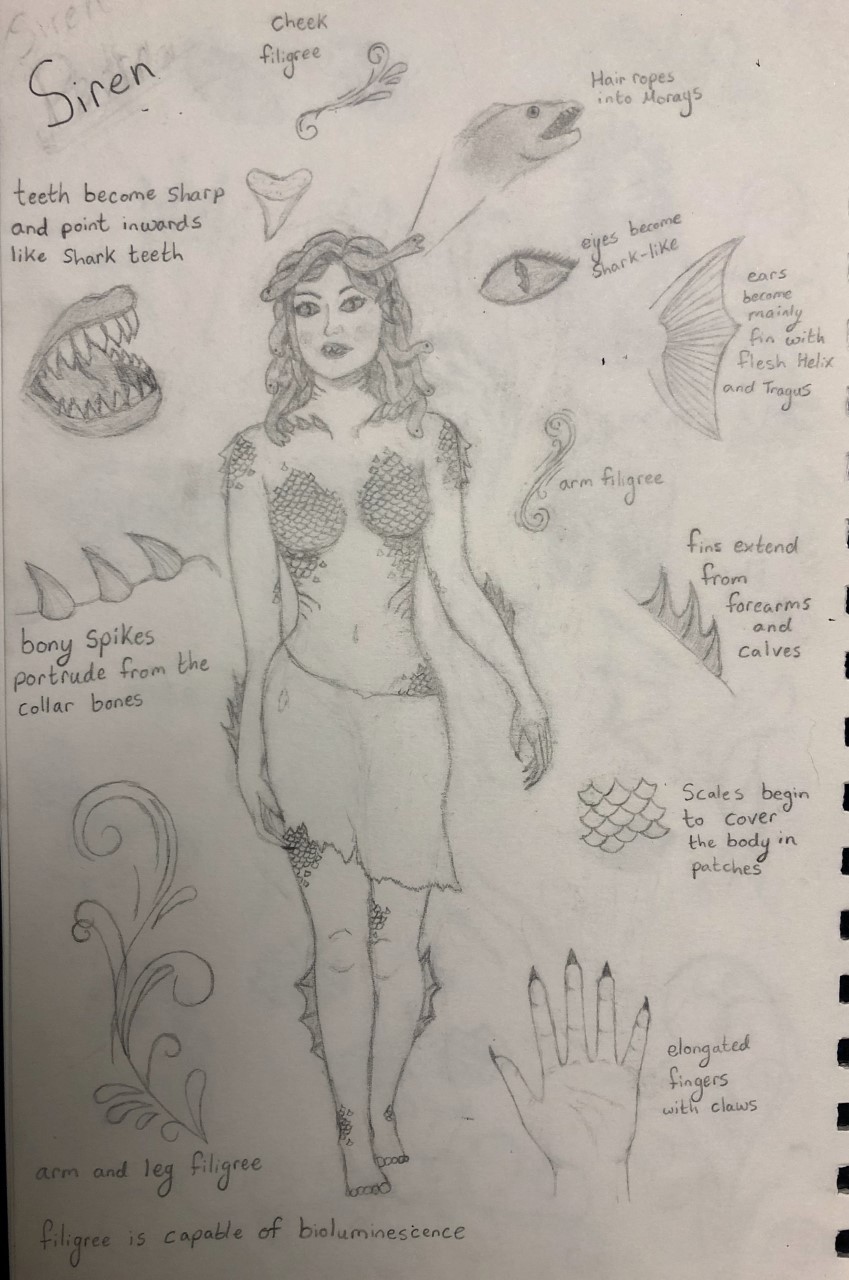 Siren
Cheek
filigree
Hair ropes
into Morays
teeth become sharp
and point inwards
like Shark teeth
eyes become
Shark-like
ears
become
mainly
fin with
flesh Helix
and Tragus
arm filigree
fins extend
from
forearms
and
calves
bony Spikes
portrude from the
collar bones
Scales begin
to cover
the body in
patches
elongated
fingers
with claws
arm and leg filigree
filigree is capable of bioluminescence